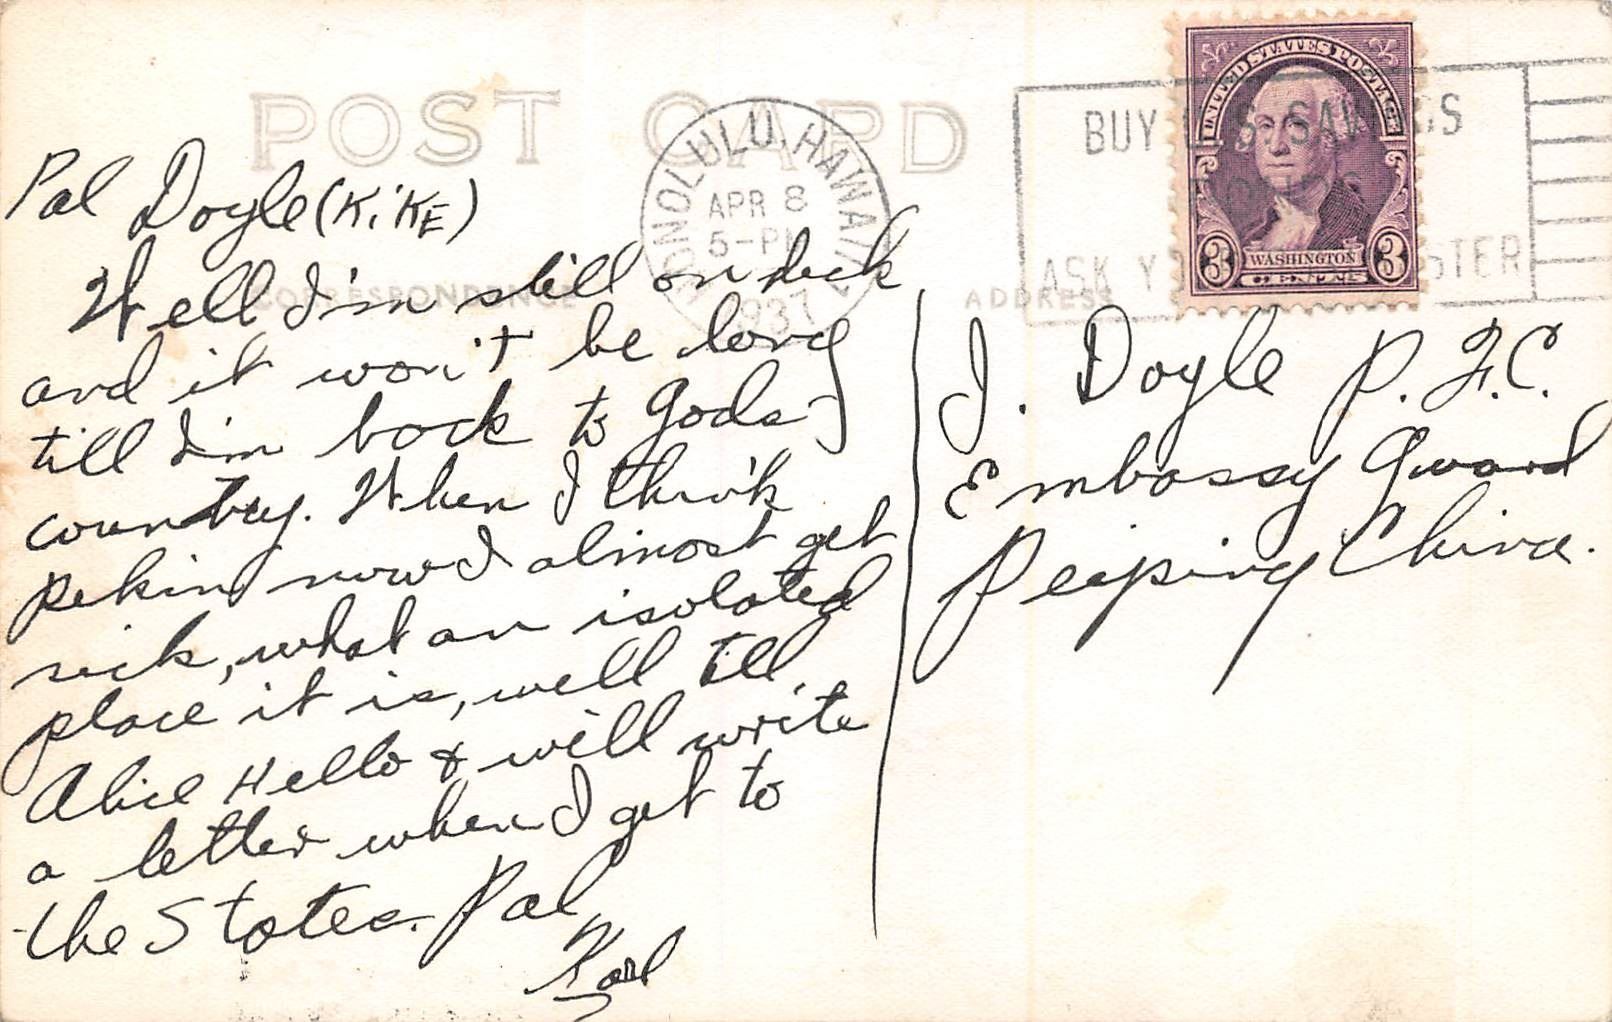 POST CARD
CORRESPONDENCE
ADDRESS
HONOLULU, HAWAII
APR 8
5-PM
1937
BUY U.S. SAVINGS
BONDS
ASK YOUR POSTMASTER
UNITED STATES POSTAGE
WASHINGTON
3 CENTS 3
Pal Doyle (KiKE)
Well I'm still on deck
and it won't be long
till I'm back to Gods
country. When I think
pekin now I almost get
sick, what an isolated
place it is, well tell
Alice Hello & will write
a letter when I get to
the States. Pal
Karl
J. Doyle P.F.C.
Embassy Guard
Peiping China.